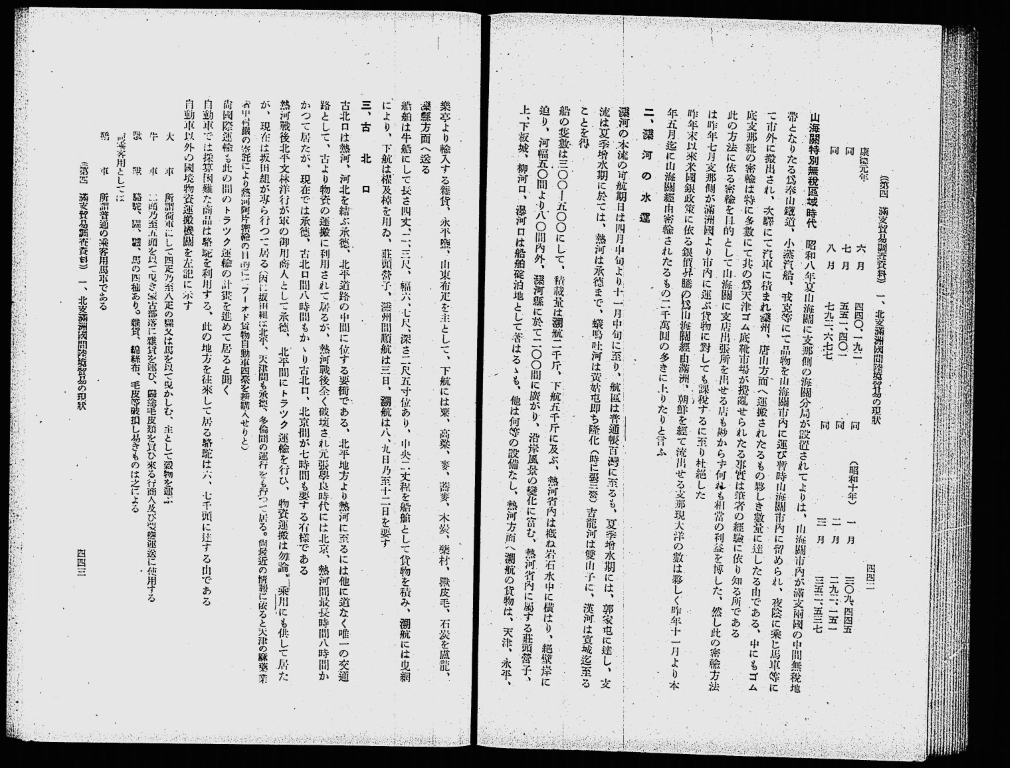 （第四　滿支貿易調査資料）　一、北支滿洲國間陸境貿易の現狀
四四二
康德元年　六月　四四〇、一九一　同　（昭和十年）　一月　三〇九、四四五
同　七月　五五一、四〇一　同　二月　二九二、一五一
同　八月　七九二、六六七　同　三月　三五二、五三七
山海關特別無稅區域時代　昭和八年夏山海關に支那側の海關分局が設置されてよりは、山海關市内が滿支兩國の中間無稅地
帶となりたる爲奉山鐵道、小蒸汽船、戎克等にて品物を山海關市内に運び暫時山海關市内に留められ、夜陰に乘じ馬車等に
て市外に搬出され、次驛にて汽車に積まれ灤州、唐山方面へ運搬されたるもの夥しき數量に達したる由である、中にもゴム
底支那靴の密輸は特に多數にて其の爲天津ゴム底靴市場が攪亂せられたる事實は筆者の經驗に依り知る所である
此の方法に依る密輸を目的として山海關に支店出張所を出せる店も尠からず何れも相當の利益を博した、然し此の密輸方法
は昨年七月支那側が滿洲國より市内に運ぶ貨物に對しても課稅するに至り杜絕した
昨年末以來米國銀政策に依る銀價昇騰の爲山海關經由滿洲、朝鮮を經て流出せる支那現大洋の數は夥しく昨年十一月より本
年五月迄に山海關經由密輸されたるもの二千萬圓の多きに上りたりと言ふ
二、灤河の水運
灤河の本流の可航期日は四月中旬より十一月中旬に至り、航區は普通報百灣に至るも、夏季增水期には、郭家屯に達し、支
流は夏季增水期に於ては、熱河は承德まで、蟻嗎吐河は黃姑屯卽ち隆化（時に張三營）吉龍河は雙山子に、漢河は寬城迄至る
ことを得
船の隻數は三〇〇—五〇〇にして、積載量は溯航二千斤、下航五千斤に及ぶ、熱河省内は槪ね岩石水中に橫はり、絕壁岸に
迫り、河幅五〇間より八〇間内外、灤河縣に於て二〇〇間に廣がり、沿岸風景の變化に富む、熱河省内に屬する莊頭營子、
上、下板城、柳河口、瀑河口は船舶碇泊地として著はるゝも、他は何等の設備なし、熱河方面へ溯航の貨物は、天津、永平、
樂亭より輸入する雜貨、永平鹽、山東布疋を主として、下航には粟、高粱、麥、蕎麥、木炭、藥材、獸皮毛、石炭を盧龍、
灤縣方面へ送る
船舶は牛船にして長さ四丈二、三尺、幅六、七尺、深さ二尺五寸位あり、中央二丈程を船艙として貨物を積み、溯航には曳綱
により、下航は櫂及棹を用ゐ、莊頭營子、灤州間順航は三日、溯航は八、九日乃至十二日を要す
三、古北口
古北口は熱河、河北を結ぶ承德、北平道路の中間に位する要衝である、北平地方より熱河に至るには他に道なく唯一の交通
路として、古より物資の運搬に利用されて居るが、熱河戰後余く破壞され元張學良時代には北京、熱河間最長時間八時間か
かつて居たが、現在では承德、古北口間八時間もかゝり古北口、北京間が七時間も要する有樣である
熱河戰後北平文林洋行が軍の御用商人として承德、北平間にトラツク運輸を行ひ、物資運搬は勿論、乘用にも供して居た
が、現在は坂田組が專ら行つて居る（尙ほ坂田組は北平、天津間も承德、多倫間の運行をも行つて居る。尙最近の情報に依ると天津の麻藥業
者中村嚴の委託により熱河阿片密輸の目的にフオード貨物自動車四臺を新購入せりと）
尙國際運輸も此の間のトラツク運輸の計畫を進めて居ると聞く
自動車では採算困難な商品は駱駝を利用する、此の地方を往來して居る駱駝は六、七千頭に達する由である
自動車以外の國境物資運搬機關を左記に示す
大車　所謂荷車にして四疋乃至八疋の騾又は馬を以て曳かしむ、主として穀物を運ぶ
牛車　二頭乃至五頭を以て曳き蒙古部落に雜貨を運び、歸途毛皮類を買ひ來る行商人及び農產運送に使用する
馱　駱駝、騾、驢、馬の四種あり。雜貨、綿絲布、毛皮等破損し易きものは之による
乘客用としては
轎車　所謂普通の乘客用馬車である
（第四　滿支貿易調査資料）　一、北支滿洲國間陸境貿易の現狀
四四三